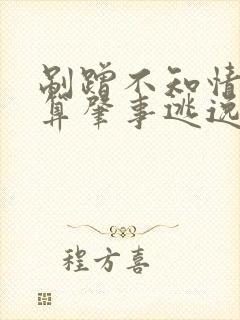 剐蹭不知情
算肇事逃逸
程方喜